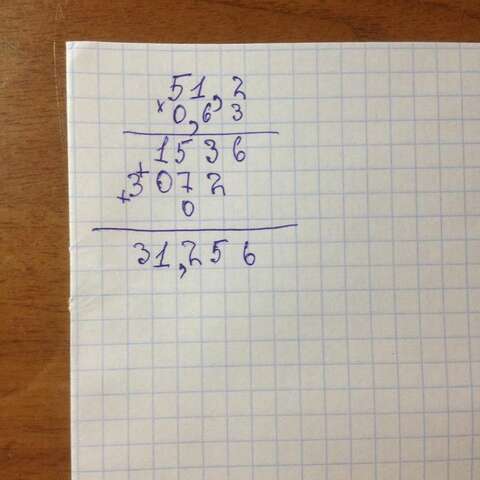 51,2
× 0,63
1536
+ 3072
0
31,256